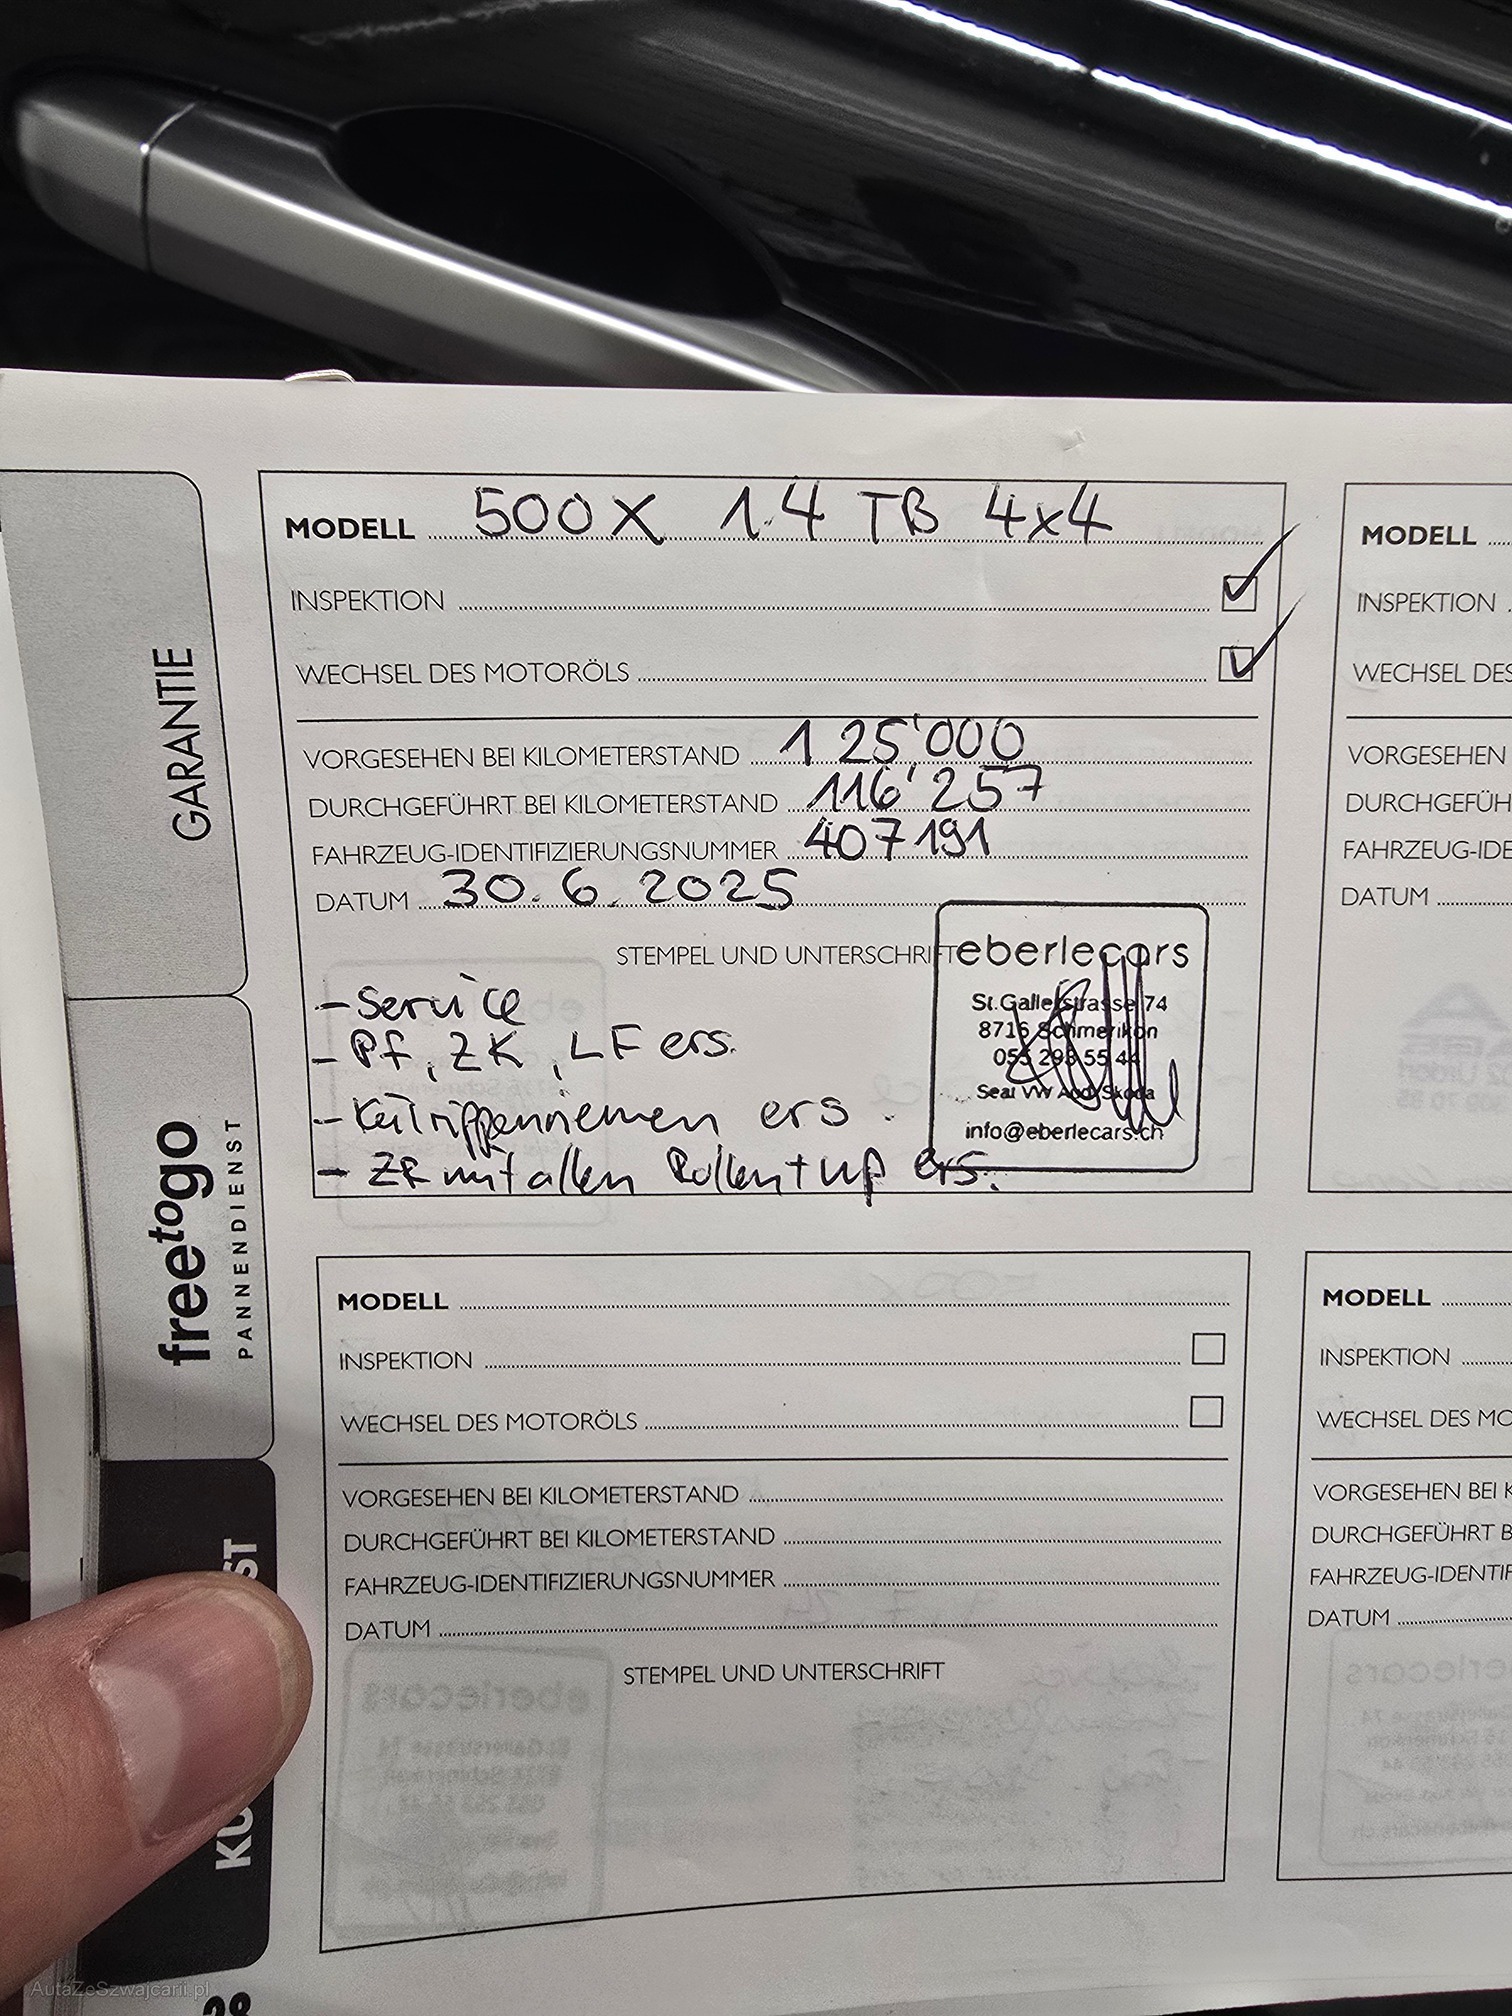 MODELL 500X 1.4 TB 4x4
INSPEKTION
WECHSEL DES MOTORÖLS
VORGESEHEN BEI KILOMETERSTAND 125'000
DURCHGEFÜHRT BEI KILOMETERSTAND 116'257
FAHRZEUG-IDENTIFIZIERUNGSNUMMER 407191
DATUM 30.6.2025
STEMPEL UND UNTERSCHRIFT
eberlecars
St.Gallerstrasse 74
8716 Schmerikon
055 293 55 44
Seat VW Audi Skoda
info@eberlecars.ch
- Service
- Pf, ZK, LF ers.
- Keilrippenriemen ers.
- ZR mit allen Rollen + WP ers.
MODELL
INSPEKTION
WECHSEL DES MOTORÖLS
VORGESEHEN BEI KILOMETERSTAND
DURCHGEFÜHRT BEI KILOMETERSTAND
FAHRZEUG-IDENTIFIZIERUNGSNUMMER
DATUM
STEMPEL UND UNTERSCHRIFT
MODELL
INSPEKTION
WECHSEL DES
VORGESEHEN
DURCHGEFÜH
FAHRZEUG-IDE
DATUM
MODELL
INSPEKTION
WECHSEL DES MO
VORGESEHEN BEI K
DURCHGEFÜHRT B
FAHRZEUG-IDENTIF
DATUM
GARANTIE
freetogo
PANNENDIENST
KU
ST
28
AutaZeSzwajcarii.pl